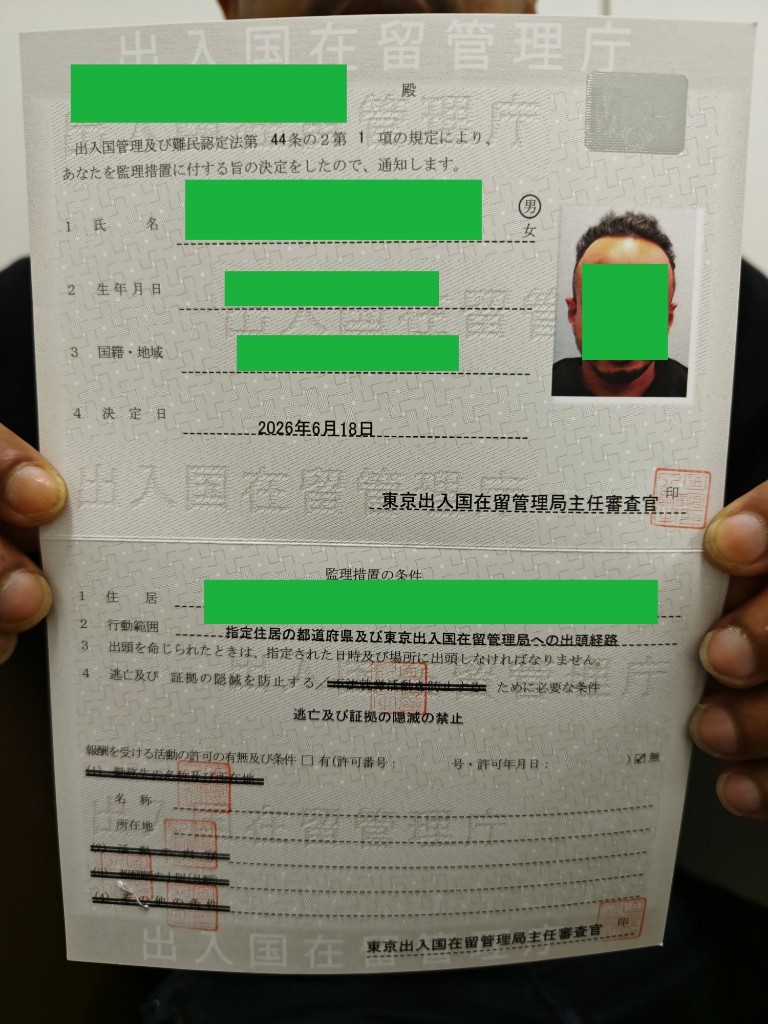 出入国在留管理庁
殿
出入国管理及び難民認定法第 44条の2第 1 項の規定により、
あなたを監理措置に付する旨の決定をしたので、通知します。
1 氏 名
男
女
2 生年月日
3 国籍・地域
4 決定日
2026年6月18日
東京出入国在留管理局主任審査官 印
監理措置の条件
1 住 居
2 行動範囲 指定住居の都道府県及び東京出入国在留管理局への出頭経路
3 出頭を命じられたときは、指定された日時及び場所に出頭しなければなりません。
4 逃亡及び 証拠の隠滅を防止する/ ために必要な条件
逃亡及び証拠の隠滅の禁止
報酬を受ける活動の許可の有無及び条件 □ 有(許可番号: 号・許可年月日: ) ☑ 無
名 称
所在地
東京出入国在留管理局主任審査官 印
出入国在留管理庁